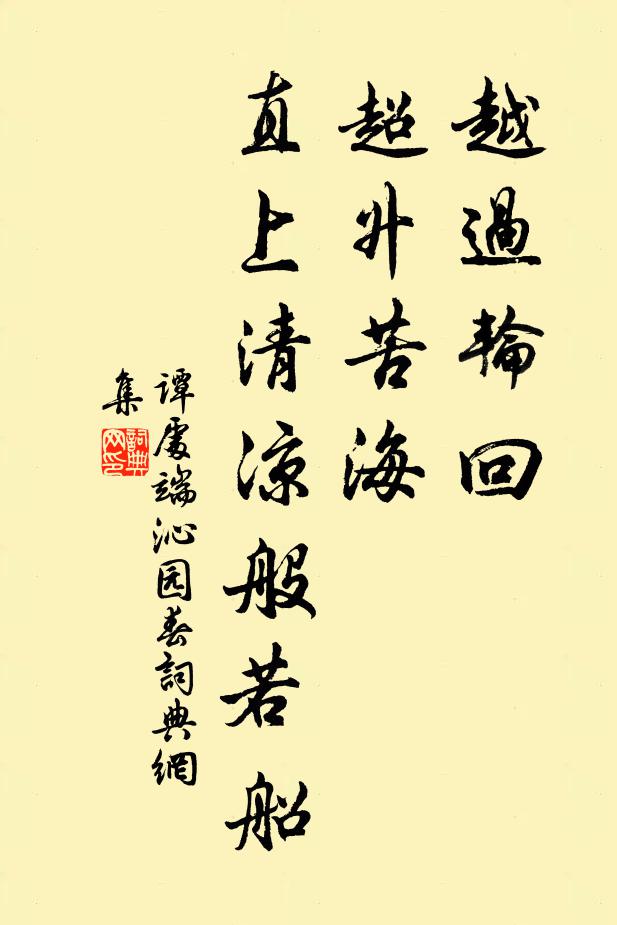 越過輪回
超升苦海
直上清涼般若船
譚處端沁园春詞典網
集
詞典
网印